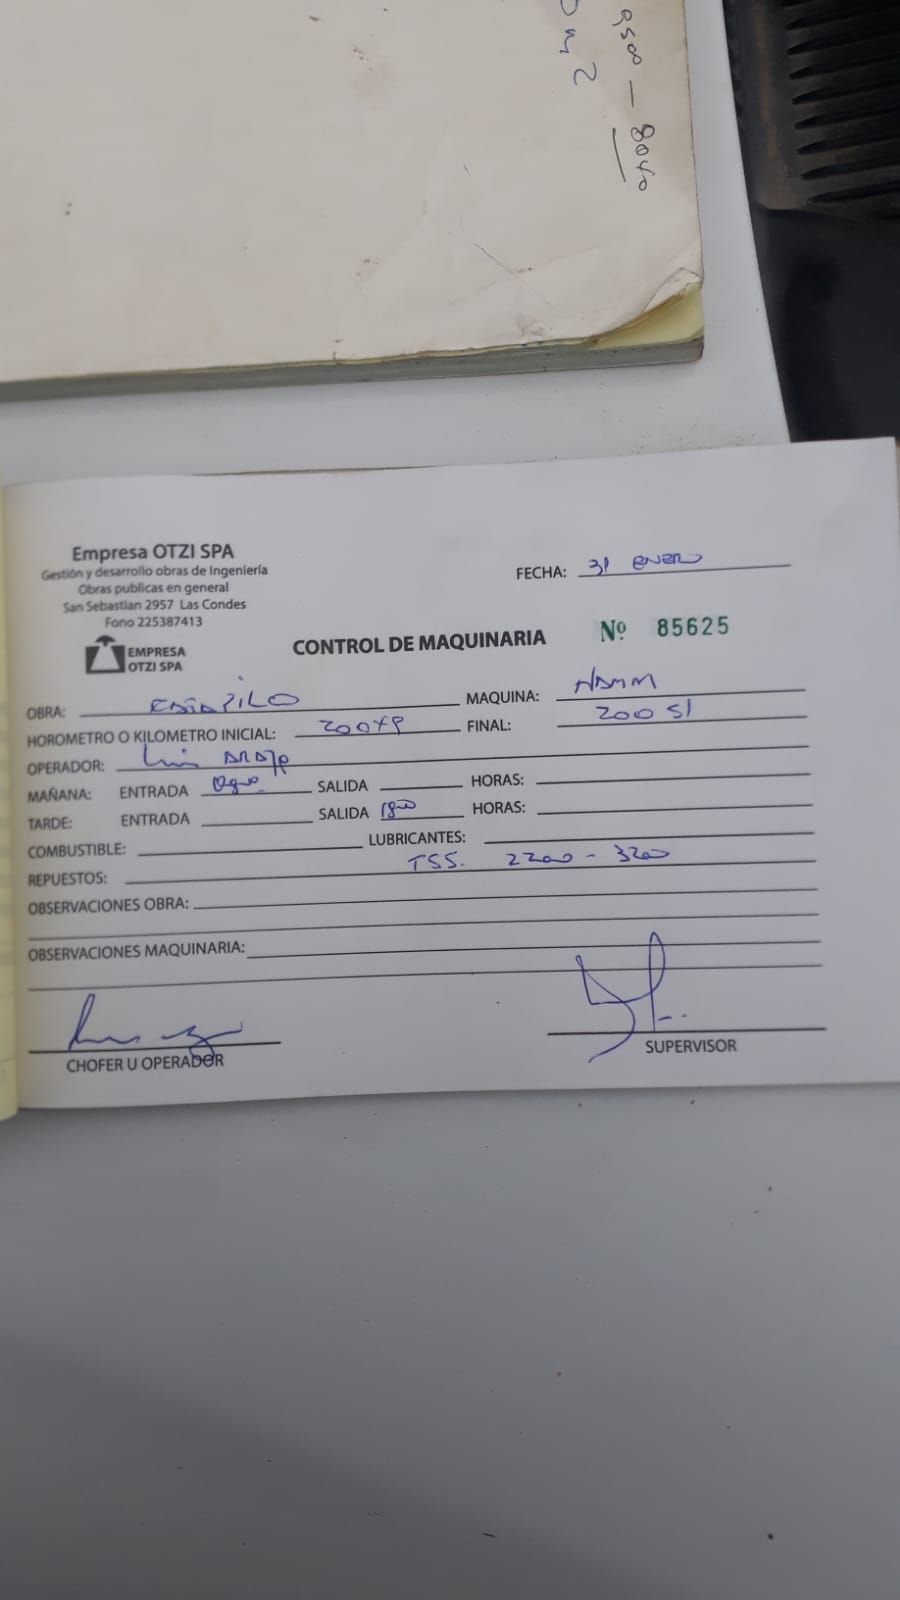 9500 — 8040
m2
Empresa OTZI SPA
Gestión y desarrollo obras de Ingeniería
Obras publicas en general
San Sebastian 2957 Las Condes
Fono 225387413
EMPRESA
OTZI SPA
FECHA: 31 ENERO
CONTROL DE MAQUINARIA Nº 85625
OBRA: MAQUINA: HAMM
HOROMETRO O KILOMETRO INICIAL: FINAL: 20051
OPERADOR: Luis
MAÑANA: ENTRADA SALIDA HORAS:
TARDE: ENTRADA SALIDA 1800 HORAS:
COMBUSTIBLE: LUBRICANTES:
REPUESTOS: TSS. 2200 - 3200
OBSERVACIONES OBRA:
OBSERVACIONES MAQUINARIA:
CHOFER U OPERADOR SUPERVISOR